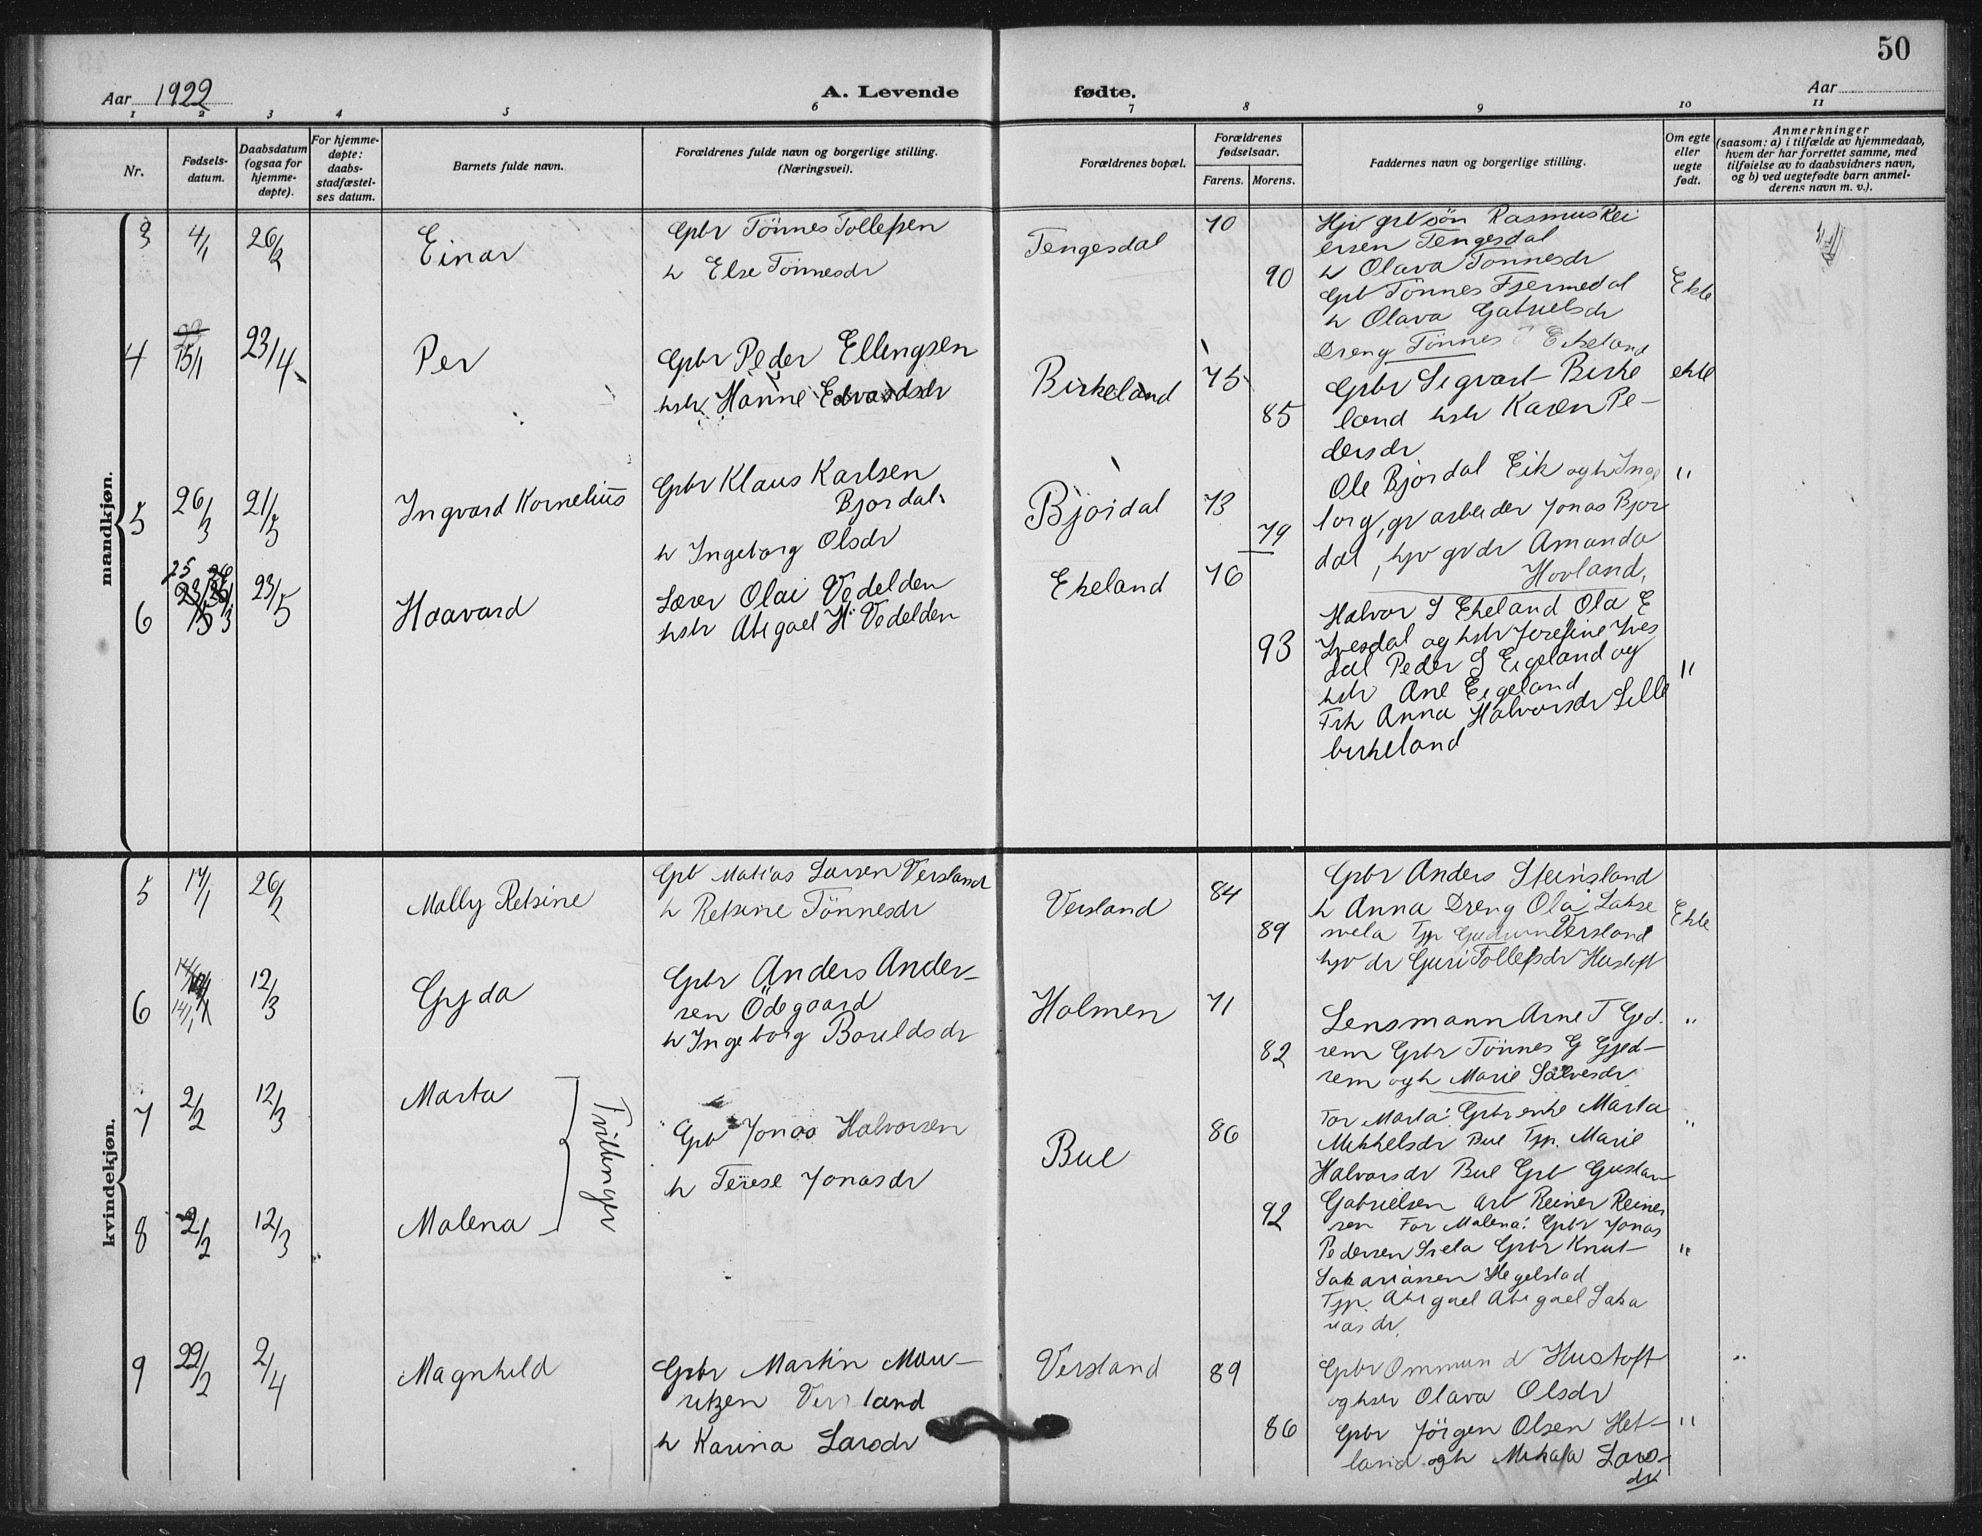 50
Aar 1922
A. Levende fødte.
Aar
1 2 3 4 5 6 7 8 9 10 11
Nr.
Fødsels-
datum.
Daabsdatum
(ogsaa for
hjemme-
døpte).
For hjemme-
døpte:
daabs-
stadfæstel-
ses datum.
Barnets fulde navn.
Forældrenes fulde navn og borgerlige stilling.
(Næringsvei).
Forældrenes bopæl.
Forældrenes
fødselsaar.
Farens. Morens.
Faddernes navn og borgerlige stilling.
Om egte
eller
uegte
født.
Anmerkninger
(saasom: a) i tilfælde av hjemmedaab,
hvem der har forrettet samme, med
tilføielse av to daabsvidners navn,
og b) ved uegtefødte barn anmel-
derens navn m. v.).
mandkjøn.
3 4/1 26/2 Einar
Gpbr Tönnes Tollefsen
h Else Tönnesdr
Tengesdal
70
90
Hjv grb sön Rasmus Rei
ersen Tengesdal
h Olava Tönnesdr
Gpb Tönnes Fjermedal
h Olava Gabrielsdr
Dreng Tönnes Eikeland
Ekte
4 15/1 23/4 Per
Gpbr Peder Ellingsen
hstr Hanne Edvardsdr
Birkeland
75
85
Gpbr Sigvart Birke
land hstr Karen Pe-
dersdr
ekte
5 26/3 21/5 Ingvard Kornelius
Gpbr Klaus Karlsen
Bjordal
h Ingeborg Olsdr
Bjordal
73
79
Ole Bjordal Eik og h Inge
borg, gr arbeider Jonas Bjor
dal, hjv gr dr Amanda
Hovland,
"
6 23/5 Haavard
Lærer Olai Vedelden
hstr Abigael H Vedelden
Ekeland
76
93
Halvor S Ekeland Ola E
Ivesdal og hstr Josefine Ives
dal Peder S Eigeland og
hstr Ane Eigeland
Frk Anna Halvorsdr Lille
birkeland
"
kvindekjøn.
5 17/1 26/2 Mally Retsine
Gpb Matias Larsen Versland
h Retsine Tönnesdr
Versland
84
89
Gpbr Anders Steinsland
h Anna Dreng Ola Lakse
vela Tjp Gudrun Versland
hjv dr Guri Tollefsdr Hustoft
Ekte
6 14/1 12/3 Gyda
Gpbr Anders Ander-
sen Ödegaard
h Ingeborg Bouldsdr
Holmen
71
82
Lensmann Arne T Gjed.
rem Gpbr Tönnes G Gjed-
rem og h Marie Salvesdr
"
7 2/2 12/3 Marta
Tvillinger
Gpb Jonas Halvorsen
h Terese Jonasdr
Bue
86
92
For Marta: Gpbr enke Marta
Mikkelsdr Bue Tjp. Marie
Halvorsdr Bue Gpb Gustav
Gabrielsen arb Reiner Reiner
sen For Malena: Gpbr Jonas
Pedersen Svela Gpbr Knut
Sakariassen Hegelstad
Tjp. Abigael Abigael Saka
riasdr.
"
8 2/2 12/3 Malena
"
9 22/2 2/4 Magnhild
Gpbr Martin Mau-
ritzen Versland
h Karina Larsdr
Versland
89
86
Gpbr Ommund Hustoft
og hstr Olava Olsdr
Gpbr Jörgen Olsen Het-
land og h Mikala Lars-
dr
"